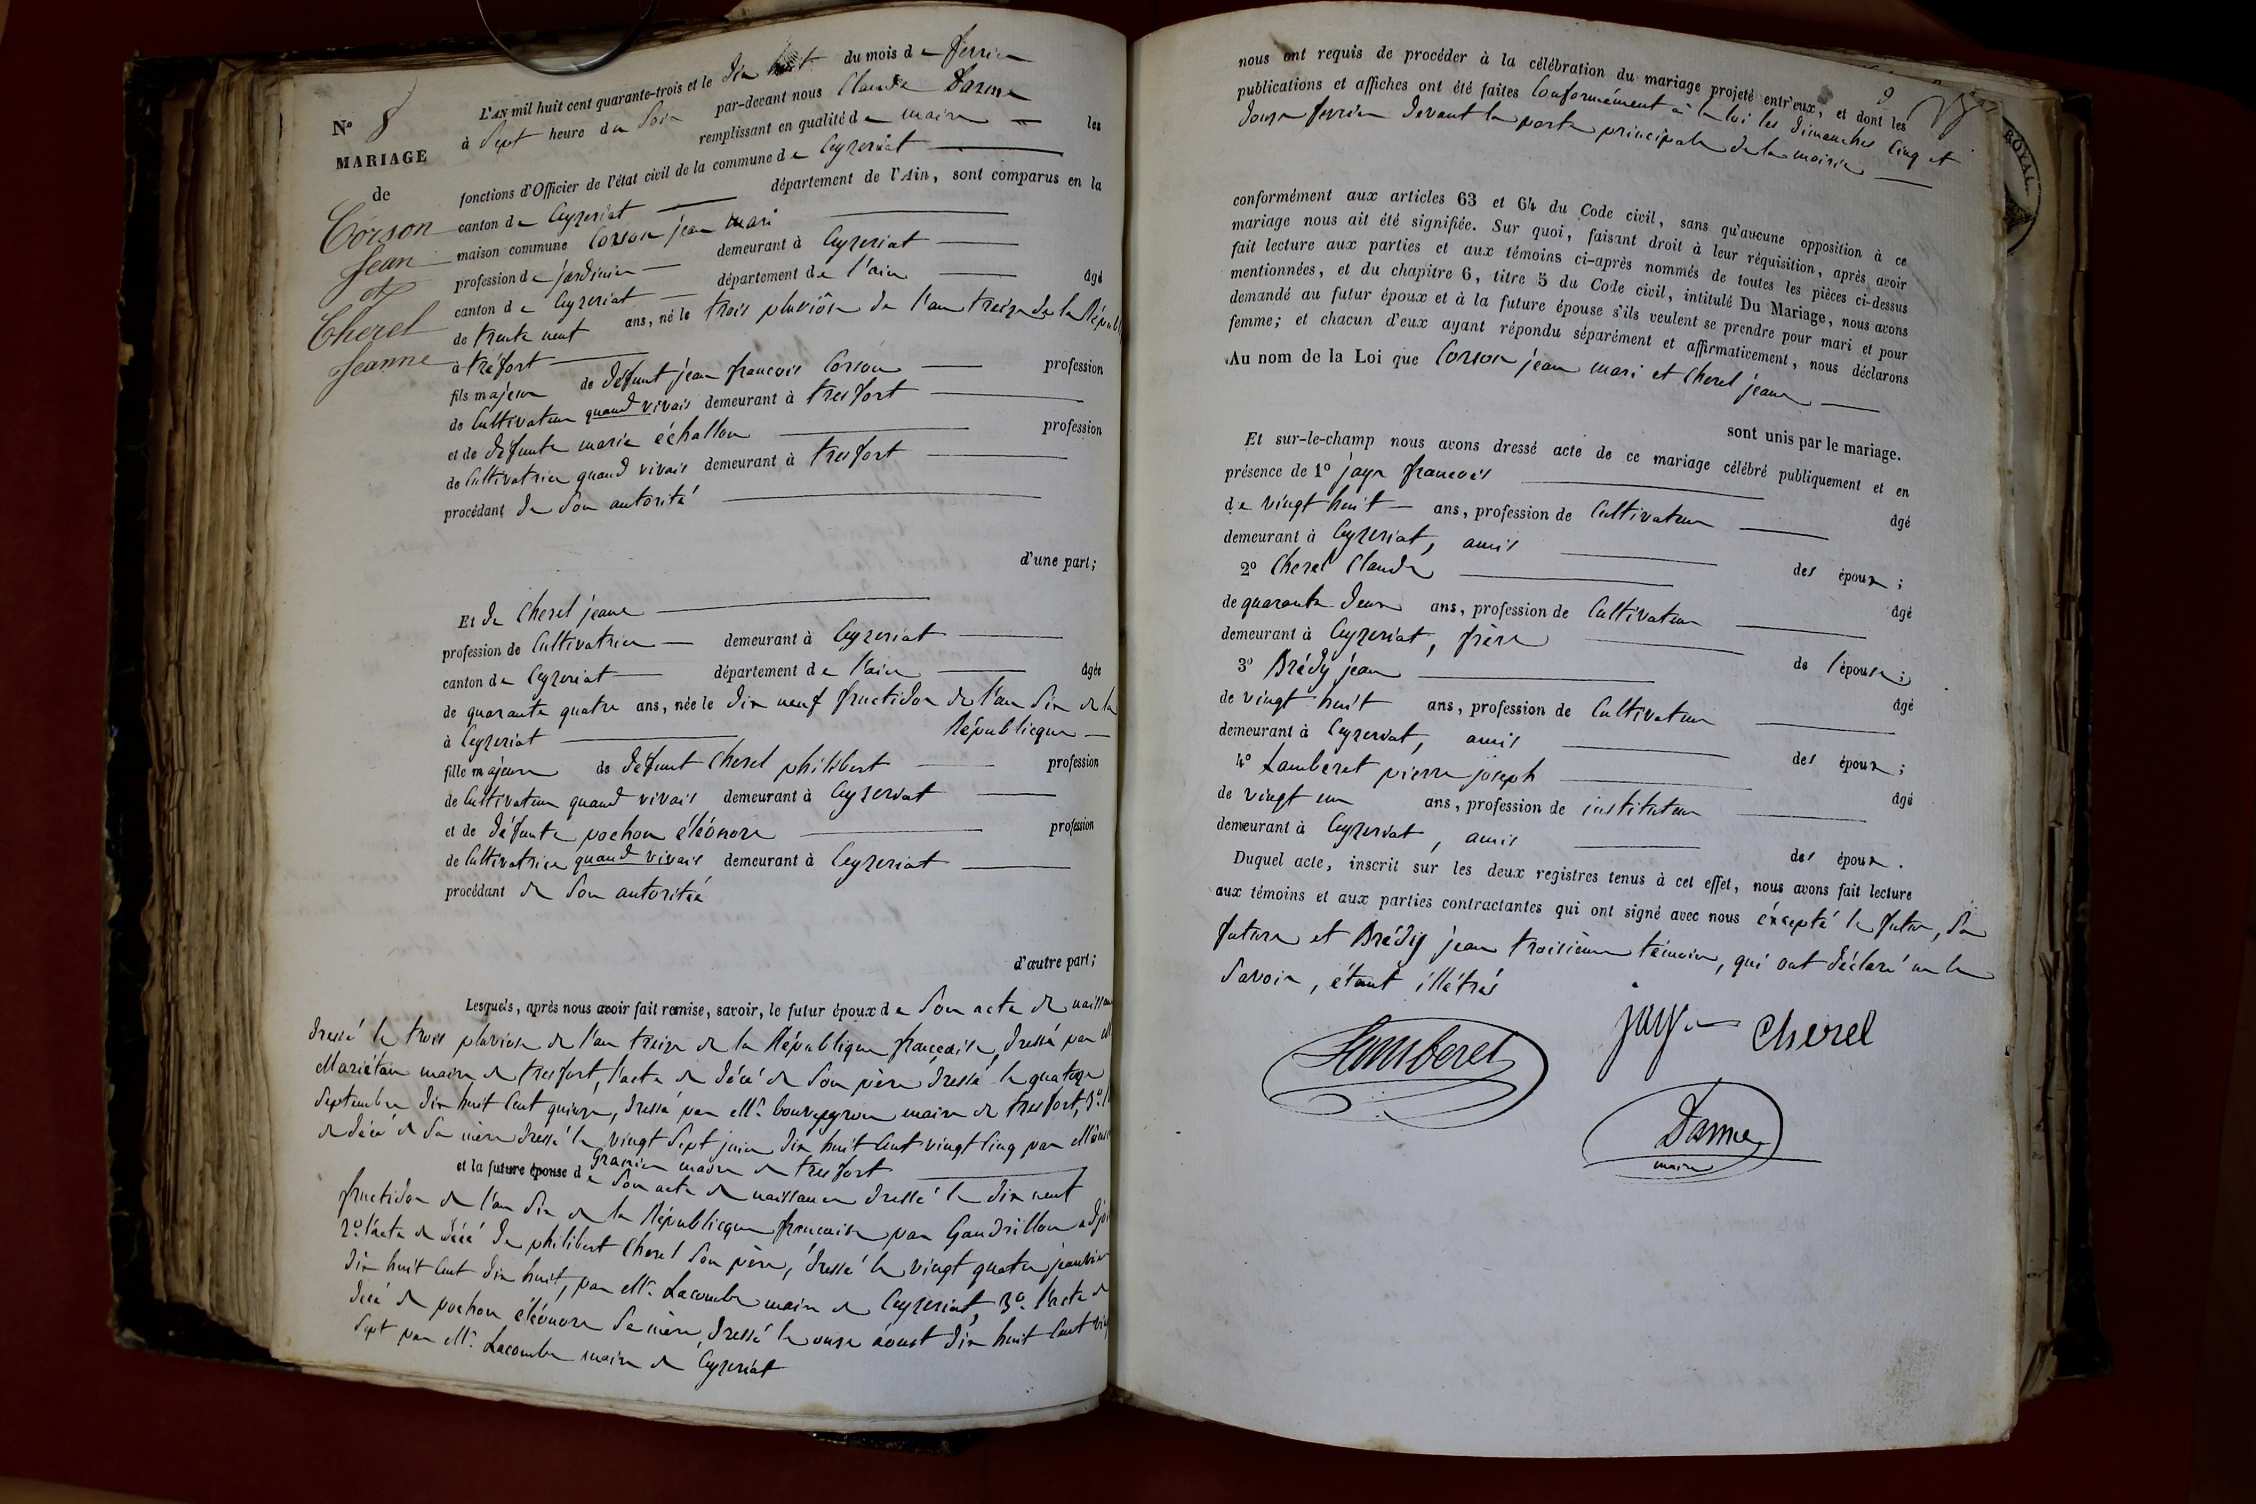 N° 8
MARIAGE
de
Corson
Jean
et
Cherel
Jeanne
L'AN mil huit cent quarante-trois et le dix huit du mois de février
à sept heure du soir par-devant nous Claude Darme
remplissant en qualité de maire les
fonctions d'Officier de l'état civil de la commune de Ceyzeriat
canton de Ceyzeriat département de l'Ain, sont comparus en la
maison commune Corson jean mari
profession de jardinier demeurant à Ceyzeriat
canton de Ceyzeriat département de l'ain âgé
de trente neuf ans, né le trois pluviôse de l'an treize de la Républ
à tréfort
fils majeur de défunt jean francois Corson profession
de Cultivateur quand vivais demeurant à tresfort
et de défunte marie échallon profession
de Cultivatrice quand vivais demeurant à tresfort
procédant de son autorité
d'une part;
Et de Cherel jeane
profession de Cultivatrice demeurant à Ceyzeriat
canton de Ceyzeriat département de l'ain âgée
de quarante quatre ans, née le dix neuf fructidor de l'an six de la
République
à Ceyzeriat
fille majeure de défunt Cherel philibert profession
de Cultivateur quand vivais demeurant à Ceyzeriat
et de défunte pochon éléonore profession
de Cultivatrice quand vivais demeurant à Ceyzeriat
procédant de son autoritée
d'autre part;
Lesquels, après nous avoir fait remise, savoir, le futur époux de son acte de naissan
dressé le trois pluviose de l'an treize de la République française, dressé par
Mariétan maire de tresfort, l'acte de décé de son père dressé le quatorze
Septembre dix huit Cent quinze, dressé par Mr. maire de tresfort, 3°
de décé de sa mère dressé le vingt sept juin dix huit Cent vingt Cinq par
maire de tresfort
et la future épouse de son acte de naissance dressé le dix neuf
fructidor de l'an six de la République française par Gaudrillon adj
2° l'acte de décé de philibert Cherel son père, dressé le vingt quatre janvier
dix huit Cent dix huit, par Mr. Lacombe maire de Ceyzeriat, 3° l'acte de
décé de pochon éléonore sa mère, dressé le onze aoust dix huit Cent vin
sept par Mr. Lacombe maire de Ceyzeriat
9
nous ont requis de procéder à la célébration du mariage projeté entr'eux, et dont les
publications et affiches ont été faites Conformément à la loi les dimanches Cinq et
douze fevrier devant la porte principale de la mairie
conformément aux articles 63 et 64 du Code civil, sans qu'aucune opposition à ce
mariage nous ait été signifiée. Sur quoi, faisant droit à leur réquisition, après avoir
fait lecture aux parties et aux témoins ci-après nommés de toutes les pièces ci-dessus
mentionnées, et du chapitre 6, titre 5 du Code civil, intitulé Du Mariage, nous avons
demandé au futur époux et à la future épouse s'ils veulent se prendre pour mari et pour
femme; et chacun d'eux ayant répondu séparément et affirmativement, nous déclarons
Au nom de la Loi que Corson jean mari et Cherel jeane
sont unis par le mariage.
Et sur-le-champ nous avons dressé acte de ce mariage célébré publiquement et en
présence de 1° jayr francois
âgé
de vingt huit ans, profession de Cultivateur
demeurant à Ceyzeriat, amis des époux;
2° Cherel Claude
âgé
de quarante deux ans, profession de Cultivateur
demeurant à Ceyzeriat, frère de l'épouse;
3° Brédy jean
âgé
de vingt huit ans, profession de Cultivateur
demeurant à Ceyzeriat, amis des époux;
4° Lamberet pierre joseph
âgé
de vingt un ans, profession de instituteur
demeurant à Ceyzeriat, amis des époux.
Duquel acte, inscrit sur les deux registres tenus à cet effet, nous avons fait lecture
aux témoins et aux parties contractantes qui ont signé avec nous éxcepté le futur, la
future et Brédy jean troisième témoin, qui ont déclaré ne le
savoir, étant illétrés
Lamberet
jayr
Cherel
Darme
maire
ROYAL.